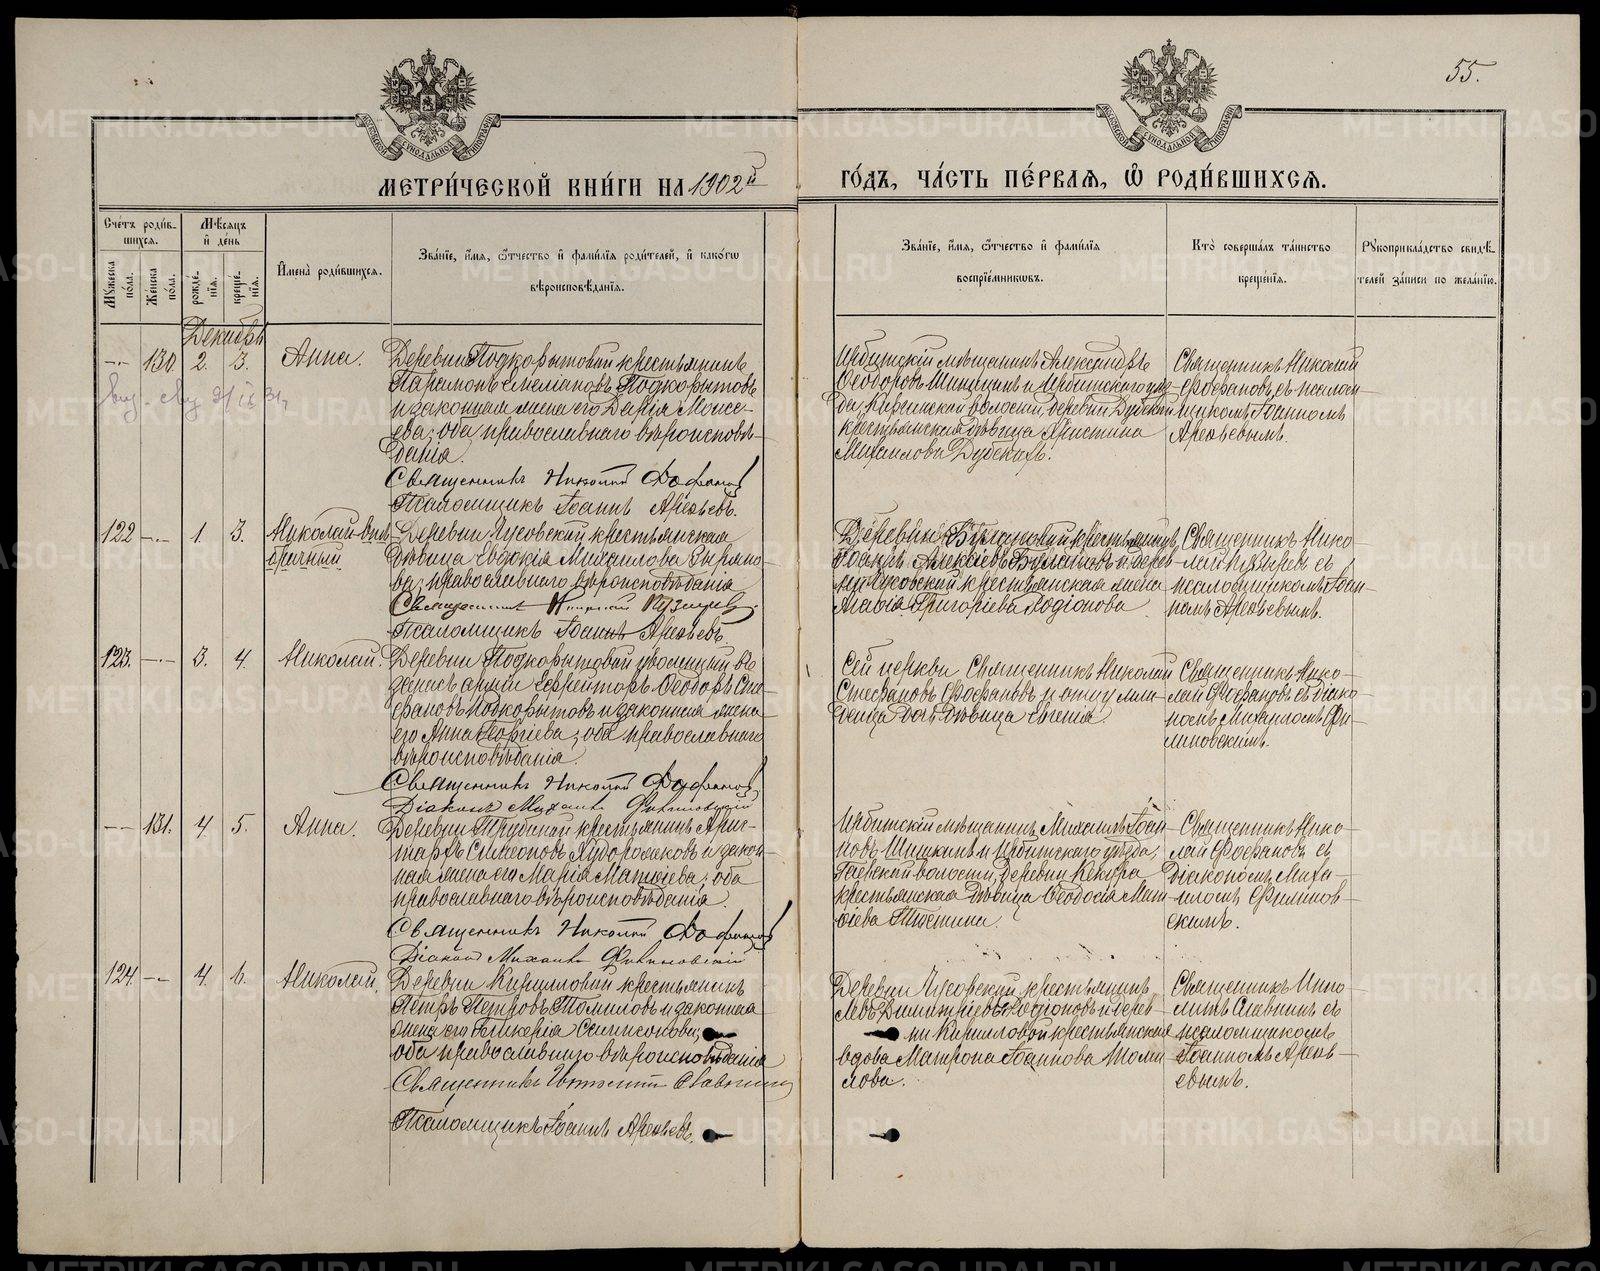 55.
МЕТРИ́ЧЕСКОЙ КНИ́ГИ НА 1902й
ГО́ДЪ, ЧА́СТЬ ПЕ́РВАЯ, Ѿ РОДИ́ВШИХСЯ.
Сче́тъ роди́в-
шихся.
Му́жеска по́ла.
Же́нска по́ла.
Мѣ́сяцъ
и де́нь
рожде́-
нія.
креще́-
нія.
И́мена роди́вшихся.
Зва́ніе, и́мя, ѻ́тчество и фами́лія роди́телей, и како́гѡ
вѣроисповѣ́данія.
Зва́ніе, и́мя, ѻ́тчество и фами́лія
воспріе́мникѡвъ.
Кто̀ соверша́лъ та́инство
креще́нія.
Рукоприкла́дство свидѣ́-
телей за́писи по жела́нію.
Декабрь
130 2. 3. Анна.
Деревни Подкорытовой крестьянинъ
Парамонъ Емеліановъ Подкорытовъ
и законная жена его Дарія Моисе-
ева; оба православнаго вѣроисповѣ-
данія.
Священникъ Николай Фофановъ
Псаломщикъ Іоаннъ Арефьевъ.
Ирбитскій мѣщанинъ Александръ
Ѳеодоровъ Шишкинъ и Ирбитскаго уѣз-
да, Киргинской волости, деревни Дубской
крестьянская дѣвица Христина
Михаилова Дубскихъ.
Священникъ Николай
Фофановъ съ псалом-
щикомъ Іоанномъ
Арефьевымъ.
122 1. 3. Николай-вне-
брачный
Деревни Чусовской крестьянская
дѣвица Евдокія Михаилова Зыряно-
ва; православнаго вѣроисповѣданія
Священникъ Николай Кузнецовъ
Псаломщикъ Іоаннъ Арефьевъ.
Деревни Булановой крестьянинъ
Іоаннъ Алексіевъ Булановъ и дерев-
ни Чусовской крестьянская жена
Марія Григоріева Родіонова
Священникъ Нико-
лай съ
псаломщикомъ Іоан-
номъ Арефьевымъ.
123. 3. 4. Николай.
Деревни Подкорытовой уволенный въ
запасъ арміи Ефрейторъ Ѳеодоръ Сте-
фановъ Подкорытовъ и законная жена
его Анна Георгіева; оба православнаго
вѣроисповѣданія.
Священникъ Николай Фофановъ
Діаконъ Михаилъ Филиновскій
Сей церкви Священникъ Николай
Стефановъ Фофановъ и
дочь дѣвица Евгенія
Священникъ Нико-
лай Фофановъ съ діако-
номъ Михаиломъ Фи-
линовскимъ.
131. 4. 5. Анна.
Деревни Трубиной крестьянинъ Арис-
тархъ Симеоновъ Худорожковъ и закон-
ная жена его Марія Матѳіева; оба
православнаго вѣроисповѣданія.
Священникъ Николай Фофановъ
Діаконъ Михаилъ Филиновскій
Ирбитскій мѣщанинъ Михаилъ Іоан-
новъ Шишкинъ и Ирбитскаго уѣзда,
Гаевской волости, деревни Кекура
крестьянская дѣвица Ѳеодосія Мат-
ѳіева
Священникъ Нико-
лай Фофановъ съ
діакономъ Миха-
иломъ Филинов-
скимъ.
124. 4. 6. Николай.
Деревни Кирилловой крестьянинъ
Петръ Петровъ Томиловъ и законная
жена его Гликерія Самсонова;
оба православнаго вѣроисповѣданія
Священникъ Ипполитъ Славнинъ
Псаломщикъ Іоаннъ Арефьевъ.
Деревни Чусовской крестьянинъ
Левъ Димитріевъ Родіоновъ и дерев-
ни Кирилловой крестьянская
вдова Матрона Іоаннова Томи-
лова.
Священникъ Иппо-
литъ Славнинъ съ
псаломщикомъ
Іоанномъ Арефь-
евымъ.
METRIKI.GASO-URAL.RU